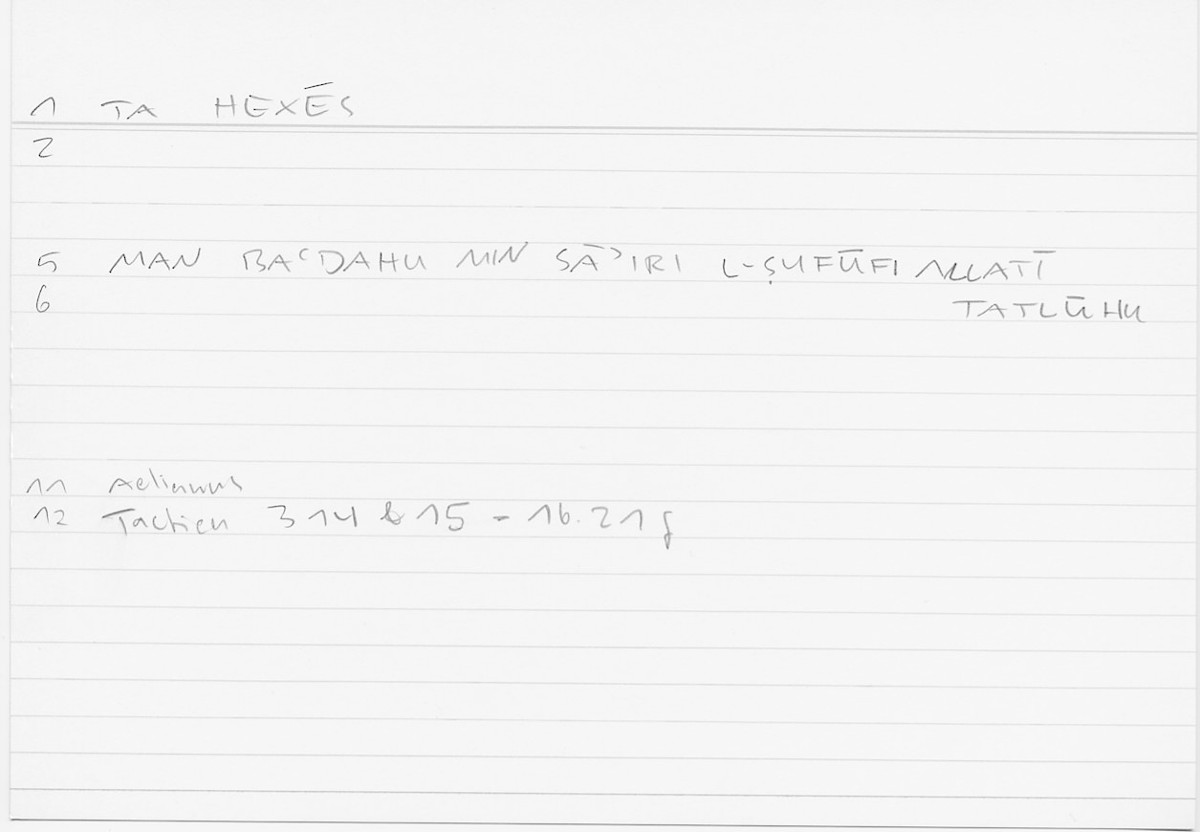 1 TA HEXĒS
2
5 MAN BAʿDAHU MIN SĀʾIRI L-ṢUFŪFI ALLATĪ
6 TATLŪHU
11 Aelianus
12 Tactica 314 b 15 - 16.21 f